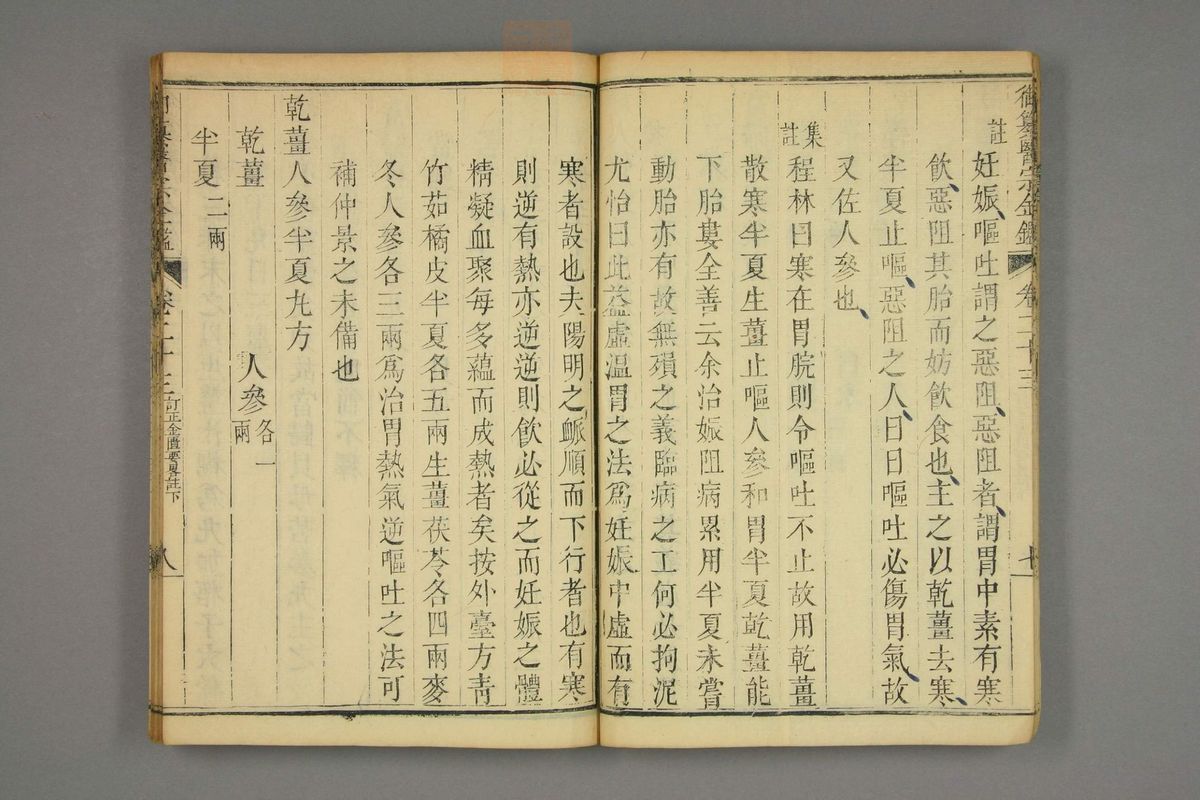 御纂醫宗金鑑 卷二十三 七
註 妊娠嘔吐謂之惡阻惡阻者謂胃中素有寒
飲惡阻其胎而妨飲食也主之以乾薑去寒
半夏止嘔惡阻之人日日嘔吐必傷胃氣故
又佐人參也
集註 程林曰寒在胃脘則令嘔吐不止故用乾薑
散寒半夏生薑止嘔人參和胃半夏乾薑能
下胎婁全善云余治娠阻病累用半夏未嘗
動胎亦有故無殞之義臨病之工何必拘泥
尤怡曰此益虛溫胃之法爲妊娠中虛而有
寒者設也夫陽明之脈順而下行者也有寒
則逆有熱亦逆逆則飲必從之而妊娠之體
精凝血聚每多蘊而成熱者矣按外臺方靑
竹茹橘皮半夏各五兩生薑茯苓各四兩麥
冬人參各三兩爲治胃熱氣逆嘔吐之法可
補仲景之未備也
乾薑人參半夏丸方
乾薑 人參各一兩
半夏二兩
卷二十三 訂正金匱要畧註下 八